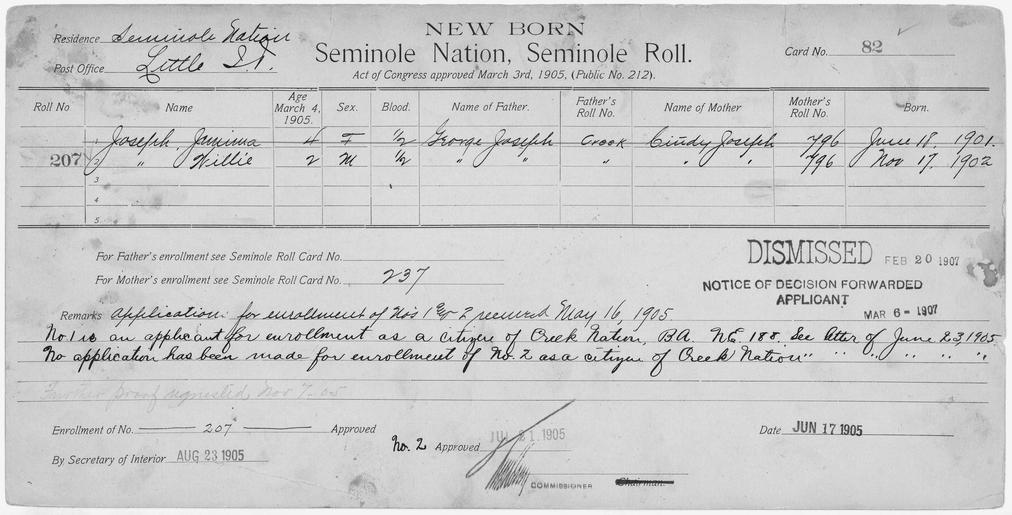 NEW BORN
Seminole Nation, Seminole Roll.
Act of Congress approved March 3rd, 1905, (Public No. 212).
Residence Seminole Nation
Post Office Little I.T.
Card No. 82
Roll No Name Age March 4, 1905. Sex. Blood. Name of Father. Father's Roll No. Name of Mother Mother's Roll No. Born.
1 Joseph, Jemima 4 F ½ George Joseph Creek Cindy Joseph 796 June 18, 1901.
207 2 " Willie 2 M ½ " " " " " 796 Nov 17. 1902
3
4
5
For Father's enrollment see Seminole Roll Card No.
For Mother's enrollment see Seminole Roll Card No. 237
DISMISSED FEB 20 1907
NOTICE OF DECISION FORWARDED
APPLICANT
MAR 6 - 1907
Remarks Application for enrollment of Nos 1 & 2 received May 16, 1905
No 1 is an applicant for enrollment as a citizen of Creek Nation, B.A. N.E. 188. See letter of June 23, 1905
No application has been made for enrollment of No. 2 as a citizen of Creek Nation " " " " " "
Further proof requested Nov 7-05
Enrollment of No. 207 Approved
By Secretary of Interior AUG 23 1905
No. 2 Approved JUL 21 1905
COMMISSIONER Chairman.
Date JUN 17 1905